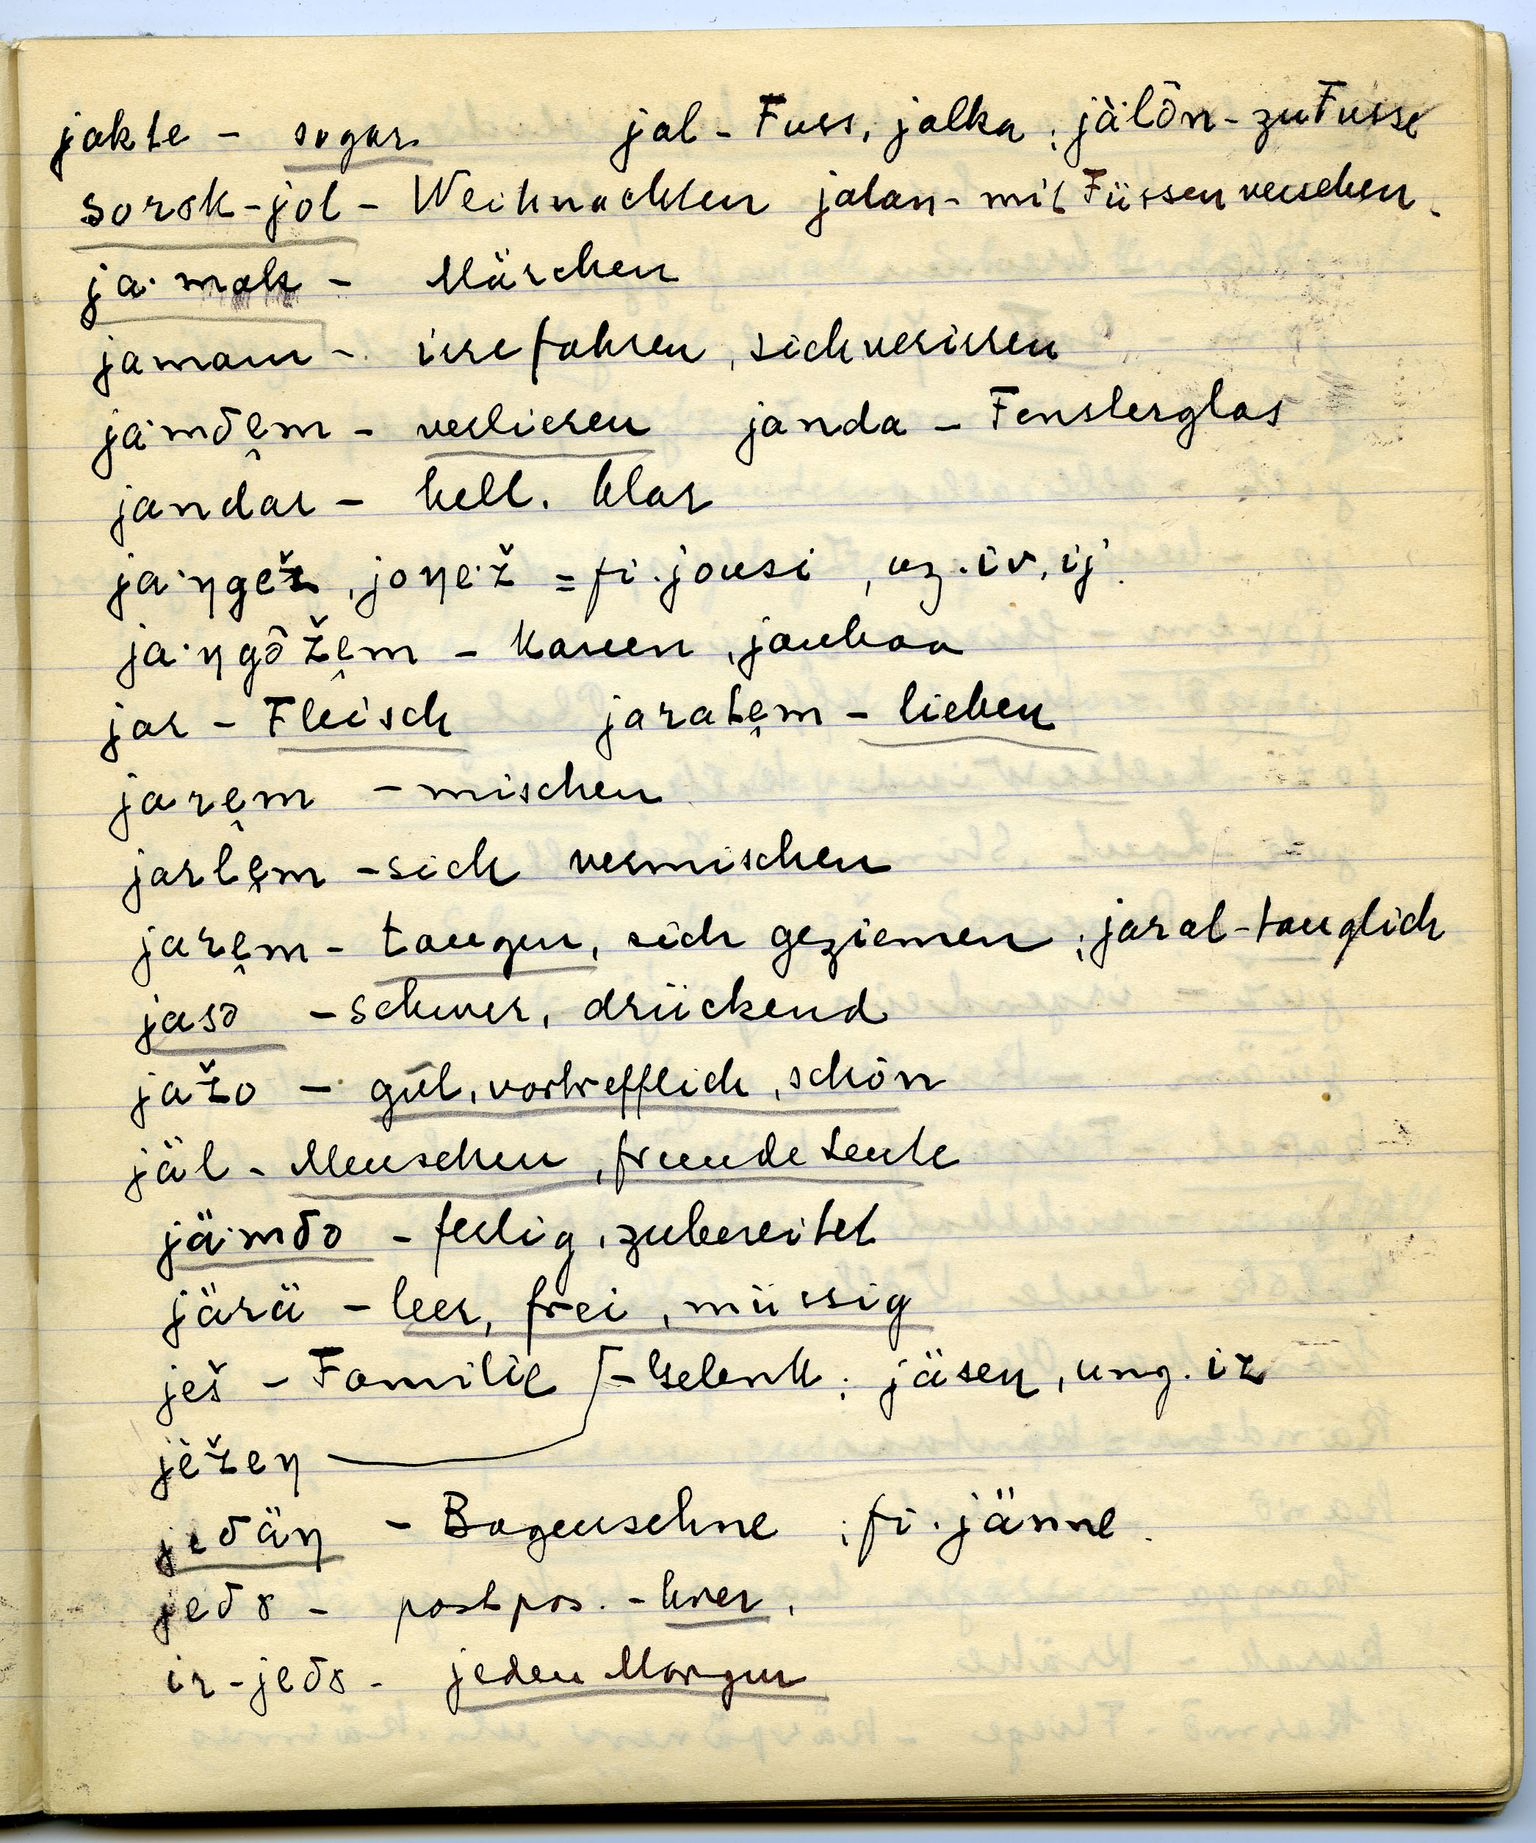 jakte - sogar jol - Fuss, jalka; jälôn - zu Fusse
sorok-jol - Weihnachten jolan - mit Füssen versehen.
ja·mak - Märchen
jamam - irre fahren, sich verirren
ja·mδe̬m - verlieren janda - Fensterglas
jandar - hell, klar
ja·ŋgež, joŋe·ž = fi. jousi, ug. iv, ij.
ja·ŋgôže̬m - kaven, jauhaa
jar - Fleisch jarate̬m - lieben
jare̬m - mischen
jarle̬m - sich vermischen
jare̬m - taugen, sich geziemen; jaral - tauglich
jasô - schwer, drückend
jažo - gut, vortrefflich, schön
jäl - Menschen, fremde Leute
jä·mδo - fertig, zubereitet
järä - leer, frei, müssig
ješ - Familie - Gelenk; jäsen, ung. iz
ježeŋ
jeδäŋ - Bogensehne; fi. jänne.
jeδə - postpos. -
ir-jeδə - jeden Morgen